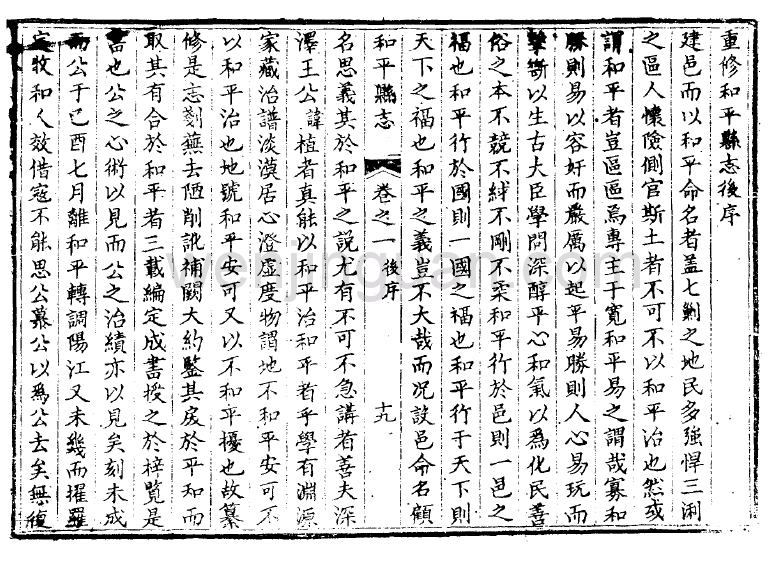 重修和平縣志後序
建邑而以和平命名者盖七鄉之地民多強悍三浰
之區人懷險側官斯土者不可不以和平治也然或
謂和平者豈區區焉專主于寬和平易之謂哉寡和
勝則易以容奸而嚴厲以起平易勝則人心易玩而
擊斷以生古大臣學問深醇平心和氣以爲化民善
俗之本不競不絿不剛不柔和平行於邑則一邑之
福也和平行於國則一國之福也和平行于天下則
天下之福也和平之義豈不大哉而况設邑命名顧
和平縣志 卷之一 後序 十九
名思義其於和平之説尤有不可不急講者善夫深
澤王公諱植者真能以和平治和平者乎學有淵源
家藏治譜淡漠居心澄虛度物謂地不和平安可不
以和平治也地號和平安可又以不和平擾也故纂
修是志剗蕪去陋削訛補闕大約鑒其戾於平和而
取其有合於和平者三載編定成書授之於梓覽是
書也公之心術以見而公之治績亦以見矣刻未成
而公于己酉七月離和平轉調陽江又未幾而擢羅
定牧和人效借寇不能思公慕公以爲公去矣無復
wenjinguan.com